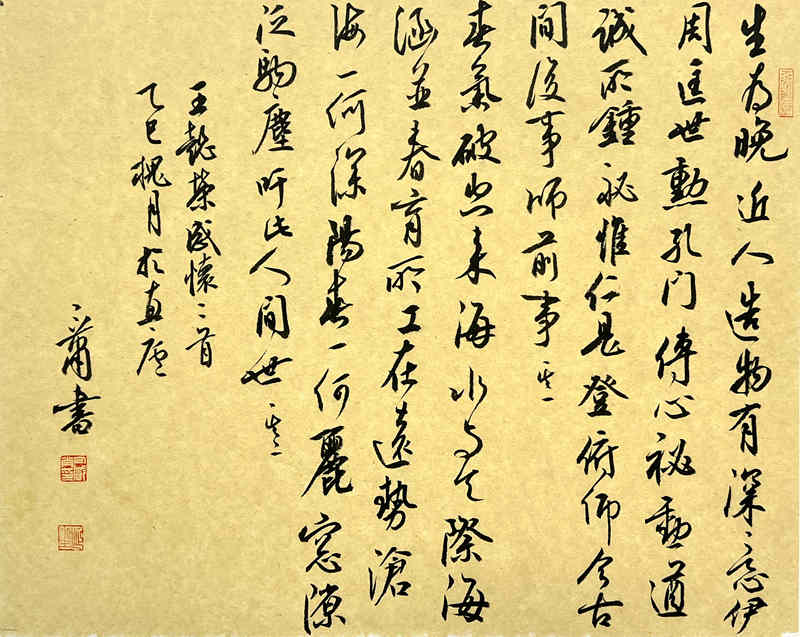 生為晚近人造物有深意伊
周匡世勳孔門傳心祕勳遒
誠所鍾祕惟仁是登俯仰今古
間後事師前事 其一
春氣破空来海水與天際海
涵並春育所工在遠勢滄
海一何深陽春一何麗窗隙
泛駒塵吁此人間世 其二
王懿榮感懷二首
乙巳槐月於真廬
蕭書